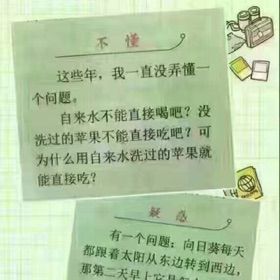 不懂
这些年，我一直没弄懂一
个问题。
自来水不能直接喝吧？没
洗过的苹果不能直接吃吧？可
为什么用自来水洗过的苹果就
能直接吃？
疑惑
有一个问：向日葵每天
都跟着太阳从东边转到西边，
那第二天早上它是